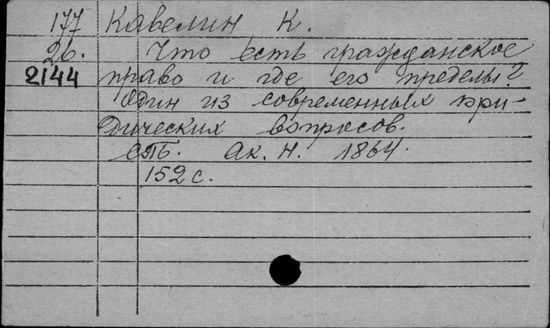 177 Кавелин К.
26. Что есть гражданское
2144 право и где его пределы?
один из современных юри-
дических вопросов.
СПБ. Ак. Н. 1864.
152 с.